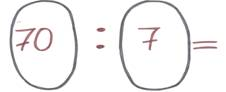 70 : 7 =